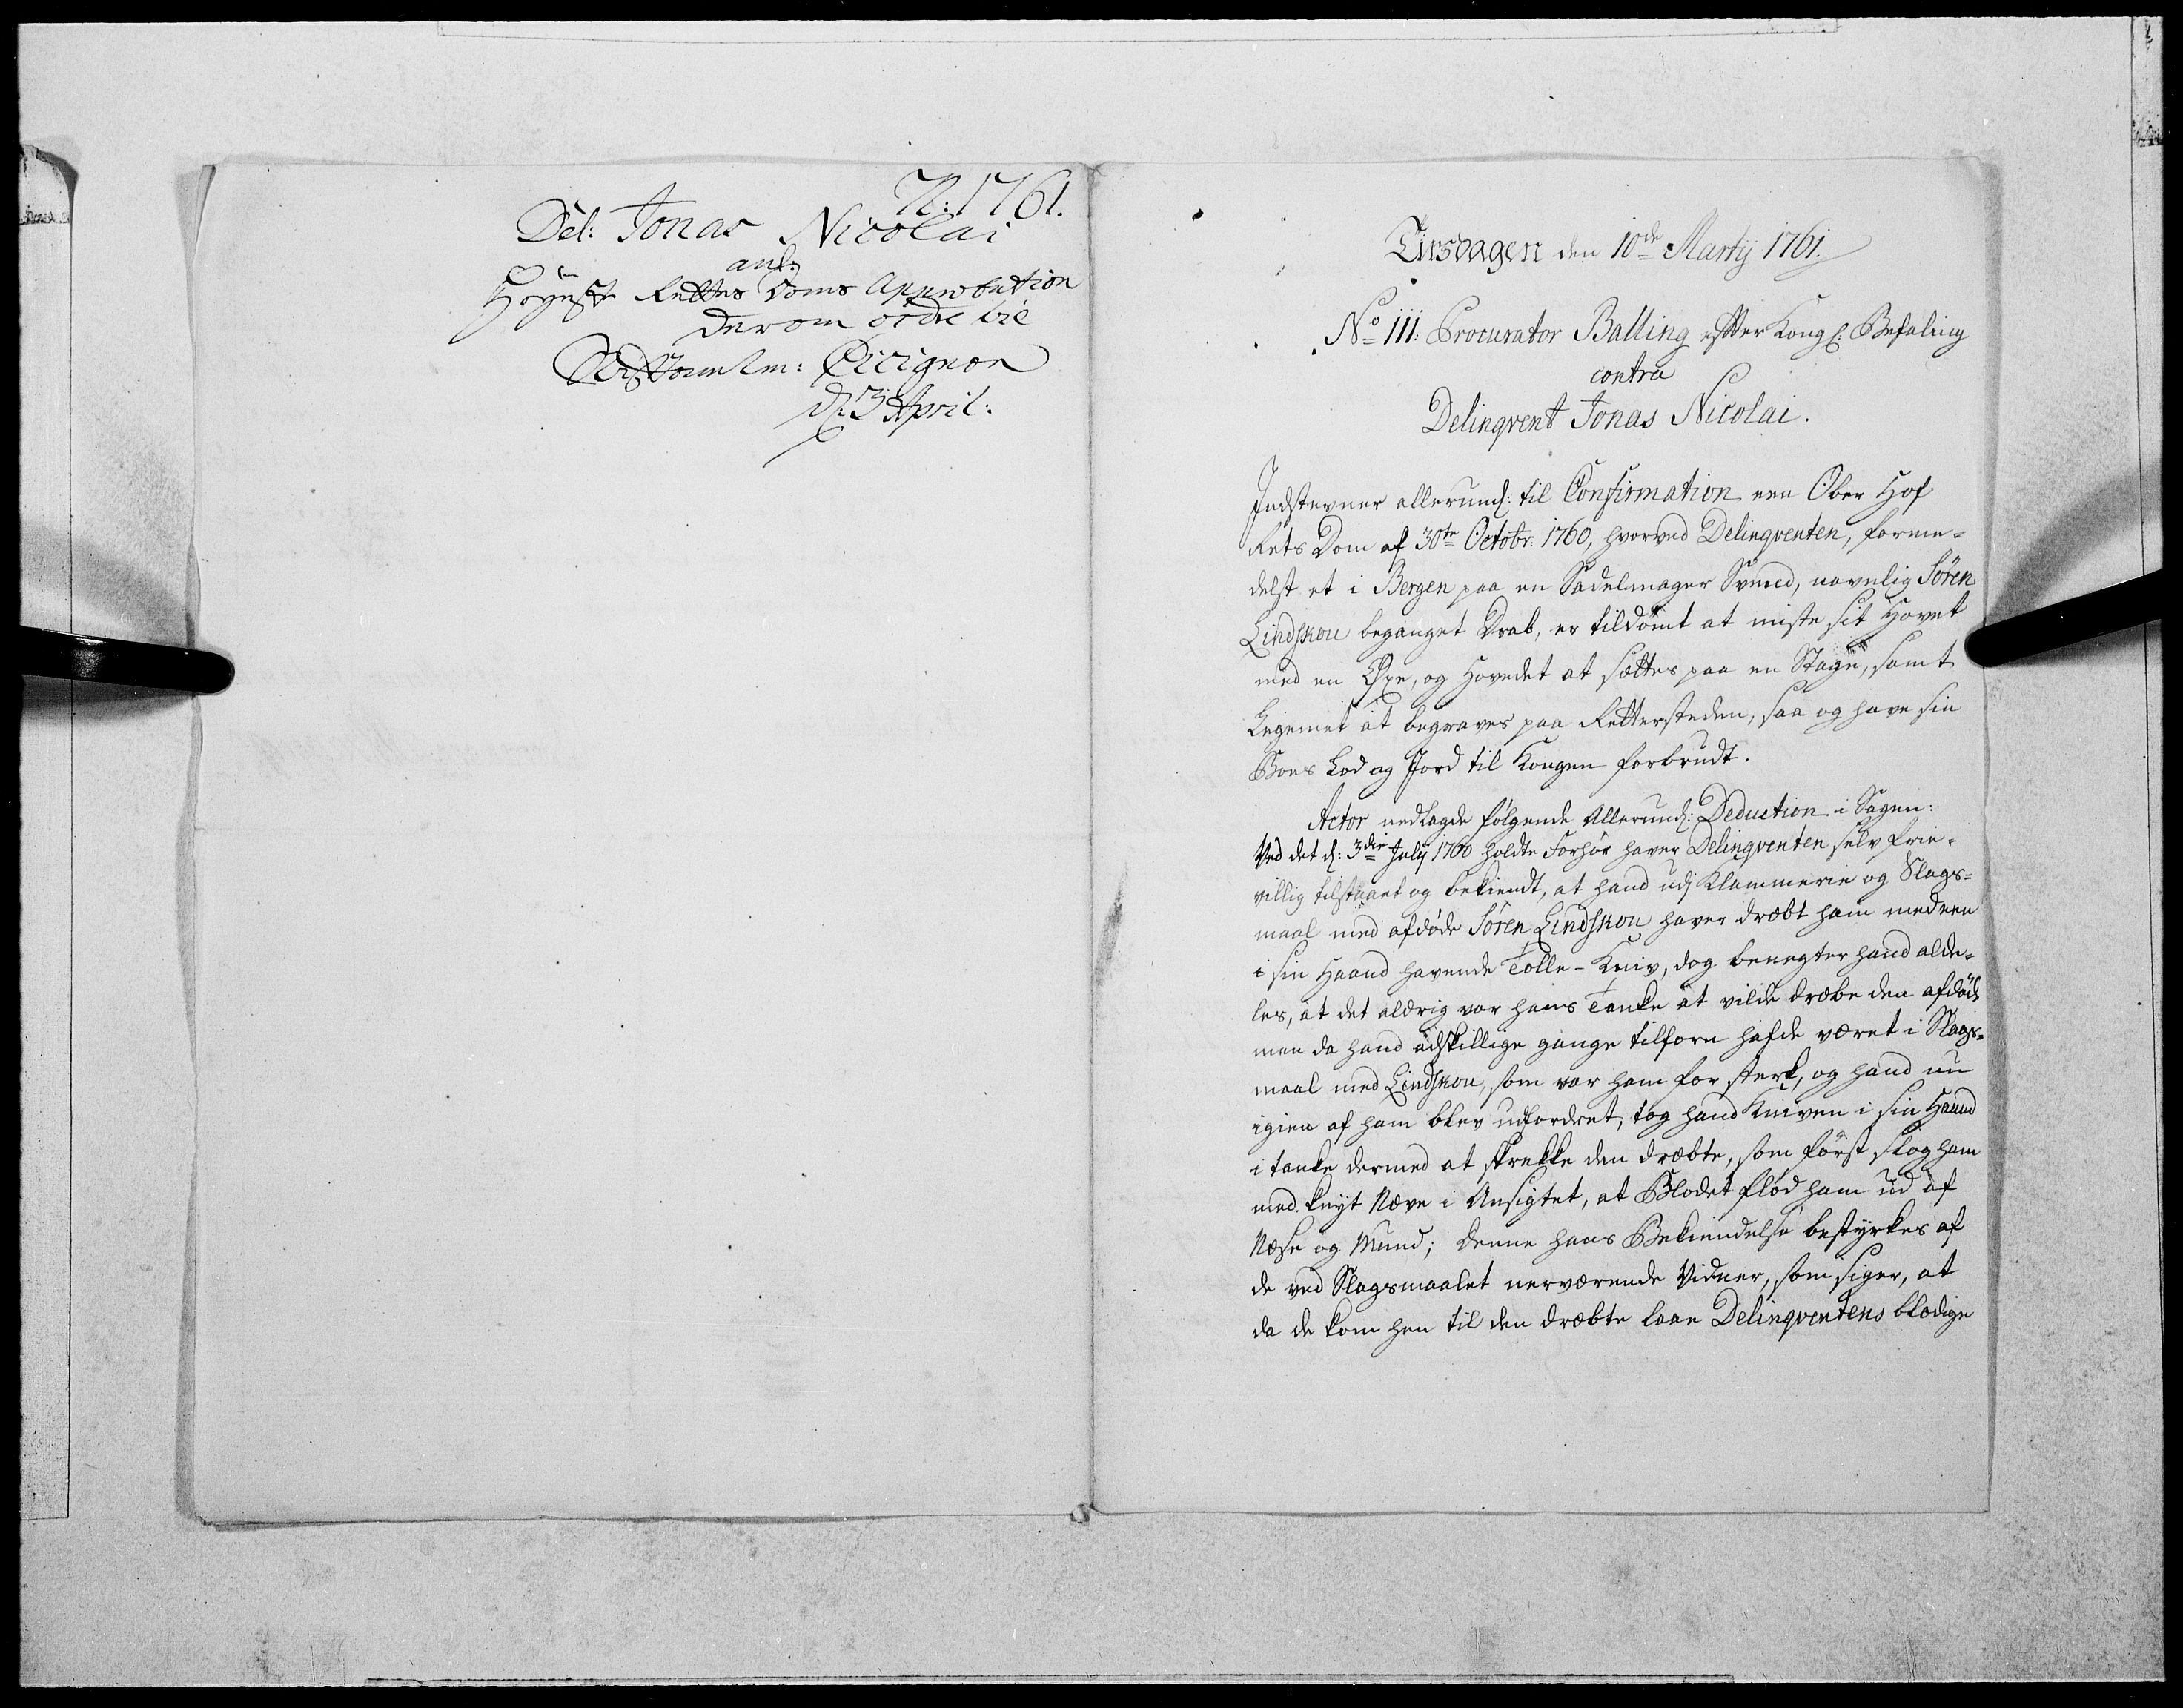 N: 1761.
Del: Jonas Nicolai
anl:
Høyeste Rettes Doms Approbation
derom ordre til
Stiftamtm: Cicignon
d: 3 April:
Tirsdagen den 10de Martij 1761.
No 111: Procurator Balling efter Kongl: Befaling
contra
Delinqvent Jonas Nicolai.
Indstevner allerund: til Confirmation een Ober Hof
Rets Dom af 30te Octobr: 1760, hvorved Delinqventen, forme-
delst et i Bergen paa en Sadelmager Svend, navnlig Søren
Lindskou beganget Drab, er tildömt at miste sit Hovet
med en Øxe, og Hovedet at sættes paa en Stage, samt
Legemet at begraves paa Rettersteden, saa og have sin
Boes Lod og Jord til Kongen forbrudt.
Actor nedlagde følgende Allerund: Deduction i Sagen:
Ved det d: 3die Julij 1760 holdte Forhør haver Delinqventen selv frie-
villig tilstaaet og bekiendt, at hand udj Klammerie og Slags-
maal med afdøde Søren Lindskou haver dræbt ham med een
i sin Haand havende Tolle-Kniv, dog benegter hand alde-
les, at det aldrig var hans Tanke at vilde dræbe den afdøde
men da hand adskillige gange tilforn hafde været i Slags-
maal med Lindskou, som var ham for sterk, og hand nu
igien af ham blev udfordret, tog hand Kniven i sin Haand
i tanke dermed at skrekke den dræbte, som først slog ham
med knyt Næve i Ansigtet, at Blodet flød ham ud af
Næse og Mund; denne hans Bekiendelse bestyrkes af
de ved Slagsmaalet nerværende Vidner, som siger, at
da de kom hen til den dræbte laae Delinqventens blodige